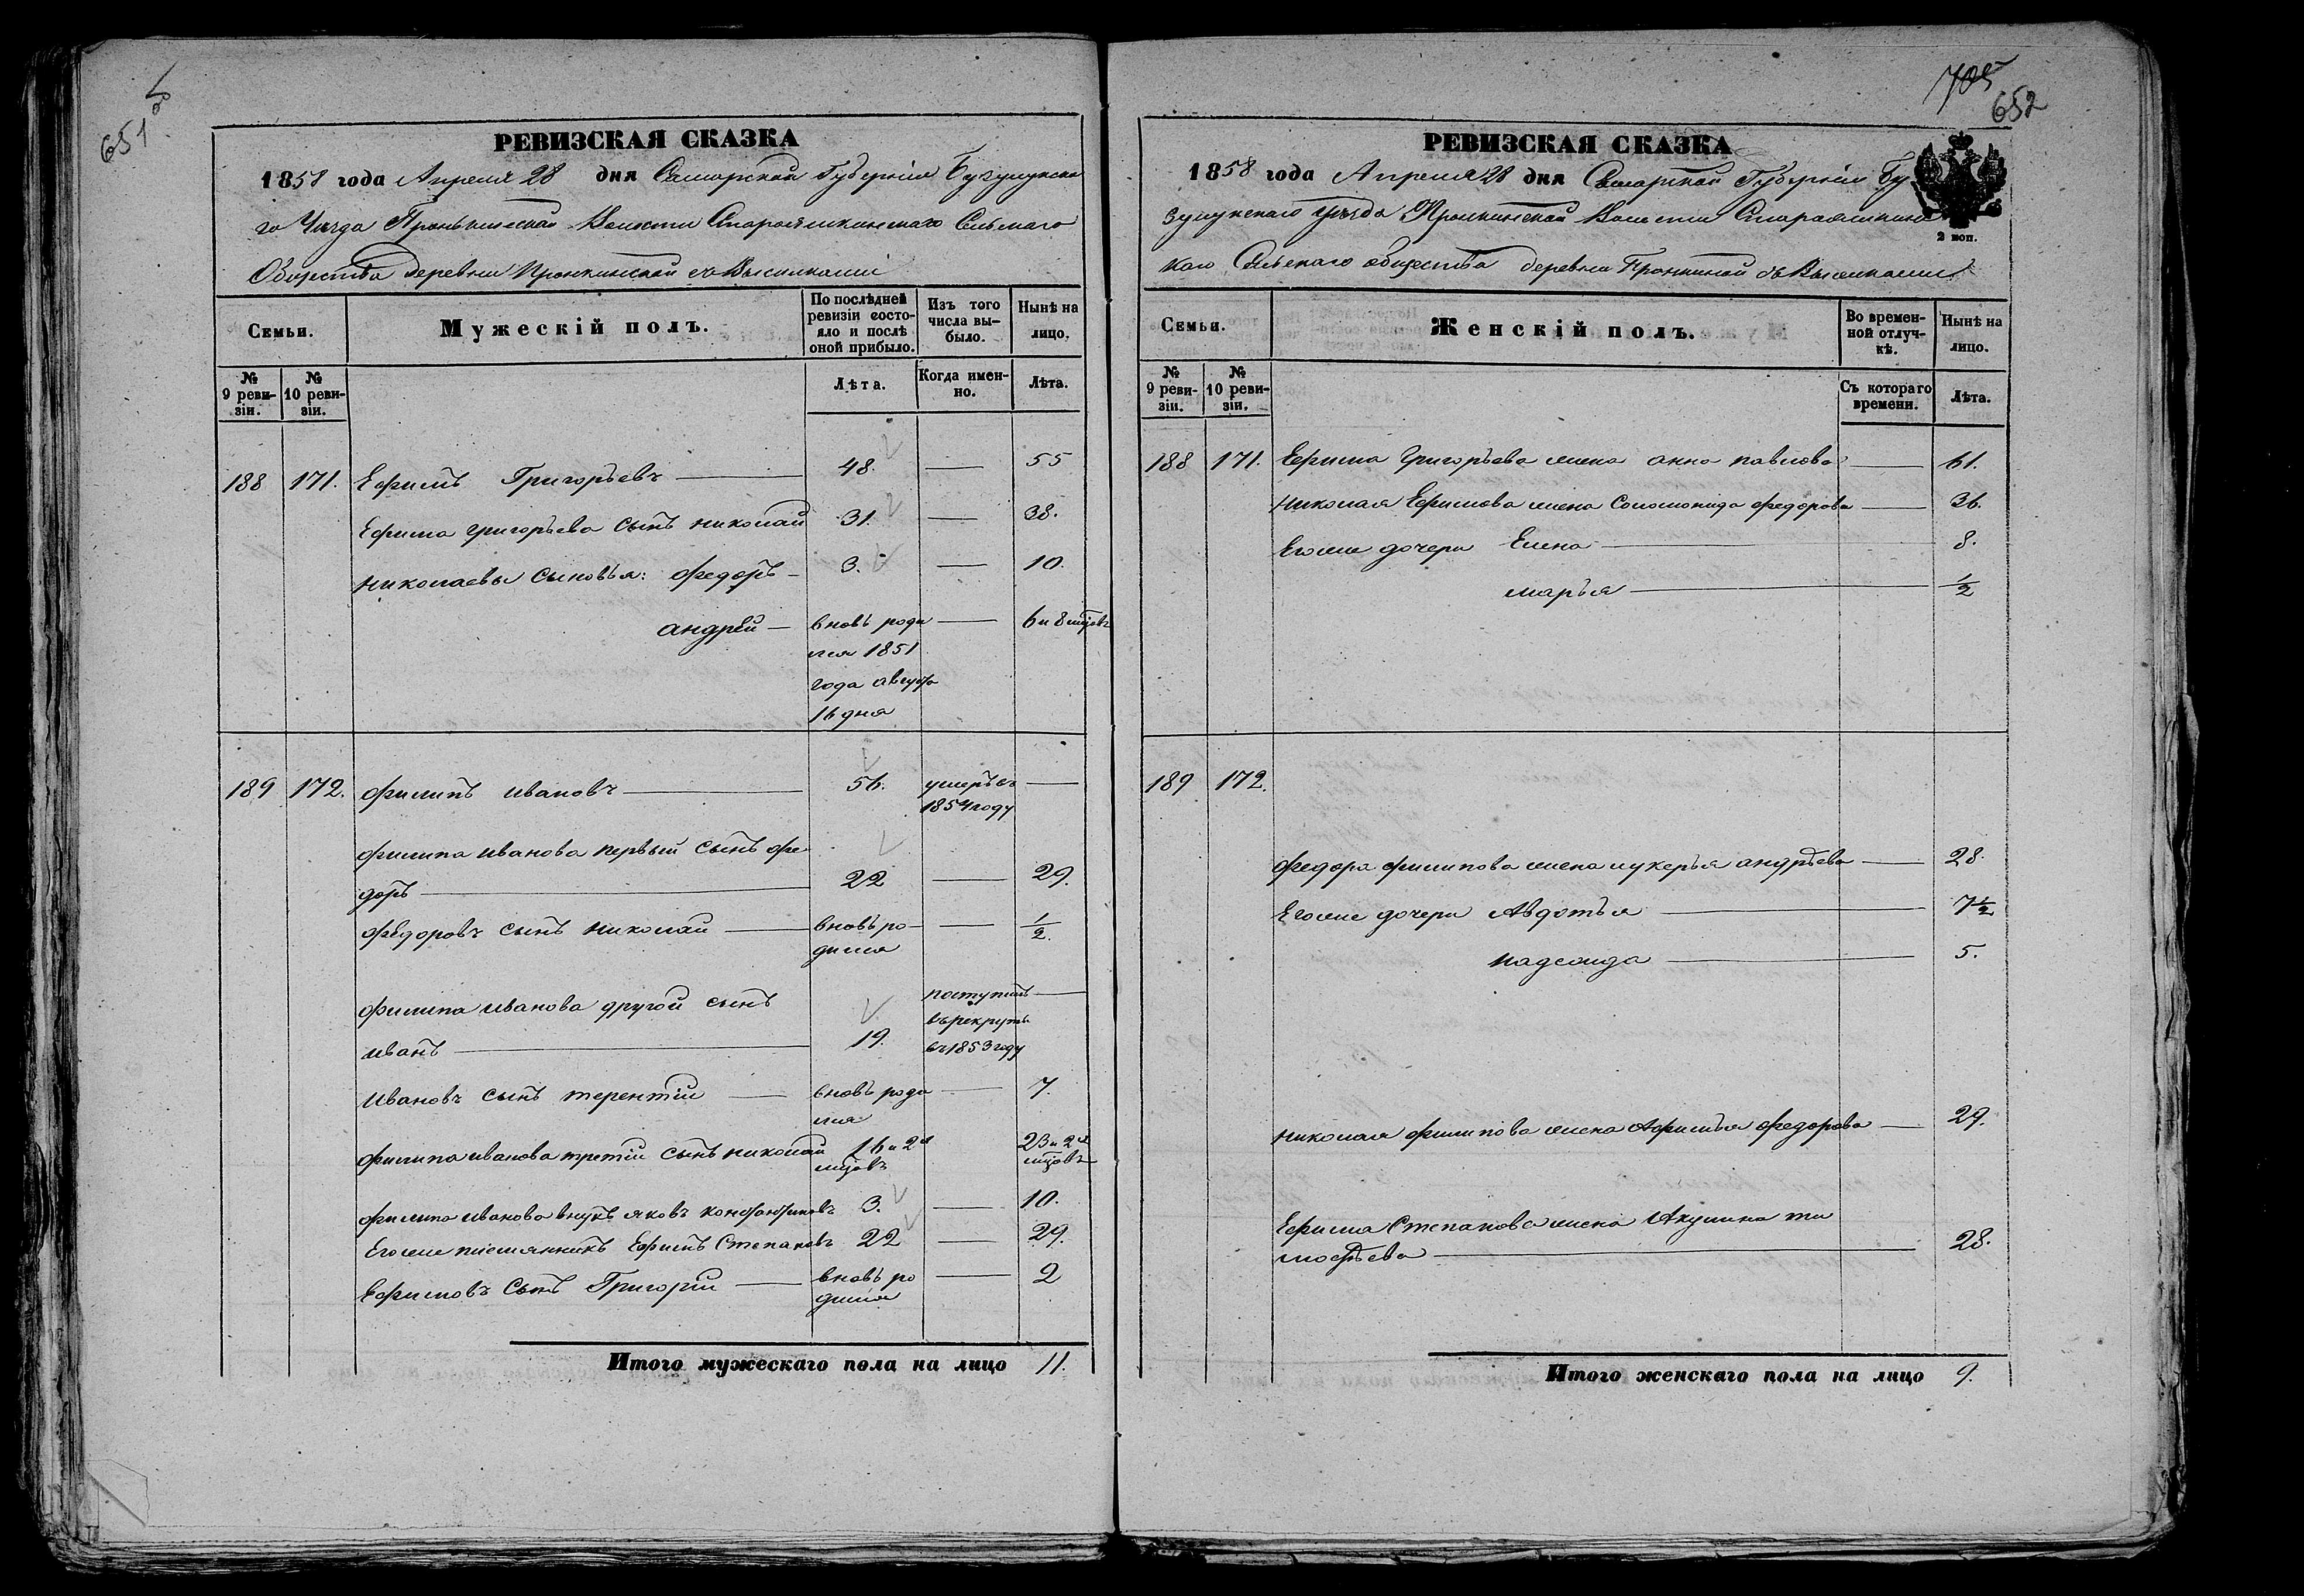 651 об
РЕВИЗСКАЯ СКАЗКА
1858 года Апреля 28 дня Самарской Губерніи Бузулукска
го Уѣзда Пронькинской Волости Староякшинскаго Сельскаго
Общества деревни Пронкинской съ Выселками
Семьи.
Мужескій полъ.
По послѣдней ревизіи состояло и послѣ оной прибыло.
Изъ того числа выбыло.
Нынѣ на лицо.
№ 9 ревизіи.
№ 10 ревизіи.
Лѣта.
Когда именно.
Лѣта.
188 171. Ефимъ Григорьевъ 48. 55
Ефима Григорьева сынъ николай 31. 38.
николаевы сыновья: федоръ 3. 10.
андрей вновь роди 6 и 8 мцовъ
лся 1851
года августа
16 дня
189 172. филипъ ивановъ 56. умеръ въ
1854 году
филипа иванова первый сынъ фе
доръ 22 29.
федоровъ сынъ николай вновь ро ½
дился
филипа иванова другой сынъ поступилъ
въ рекруты
иванъ 19. въ 1853 году
ивановъ сынъ терентій вновь роди 7.
лся
филипа иванова третій сынъ николай 16 и 2 23 и 2
мцовъ мцовъ
филипа иванова внукъ яковъ 3. 10.
Егоже племянникъ Ефимъ Степановъ 22 29.
Ефимовъ сынъ Григорій вновь ро 2
дился
Итого мужескаго пола на лицо 11.
705
652
РЕВИЗСКАЯ СКАЗКА
1858 года Апреля 28 дня Самарской Губерніи Бу
зулукскаго Уѣзда Пронкинской Волости
каго Сельскаго общества деревни Пронкиной съ Выселками
2 коп.
Семьи.
Женскій полъ.
Во временной отлучкѣ.
Нынѣ на лицо.
№ 9 ревизіи.
№ 10 ревизіи.
Съ котораго времени.
Лѣта.
188 171. Ефима Григорьева жена анна павлова 61.
николая Ефимова жена Соломонида федорова 36.
Егоже дочери Елена 8.
марья ½
189 172.
федора филипова жена лукерья андрѣева 28.
Егоже дочери Авдотья 7½
надежда 5.
николая филипова жена Афимья федорова 29.
Ефима Степанова жена Акулина ти
мофѣева 28.
Итого женскаго пола на лицо 9.